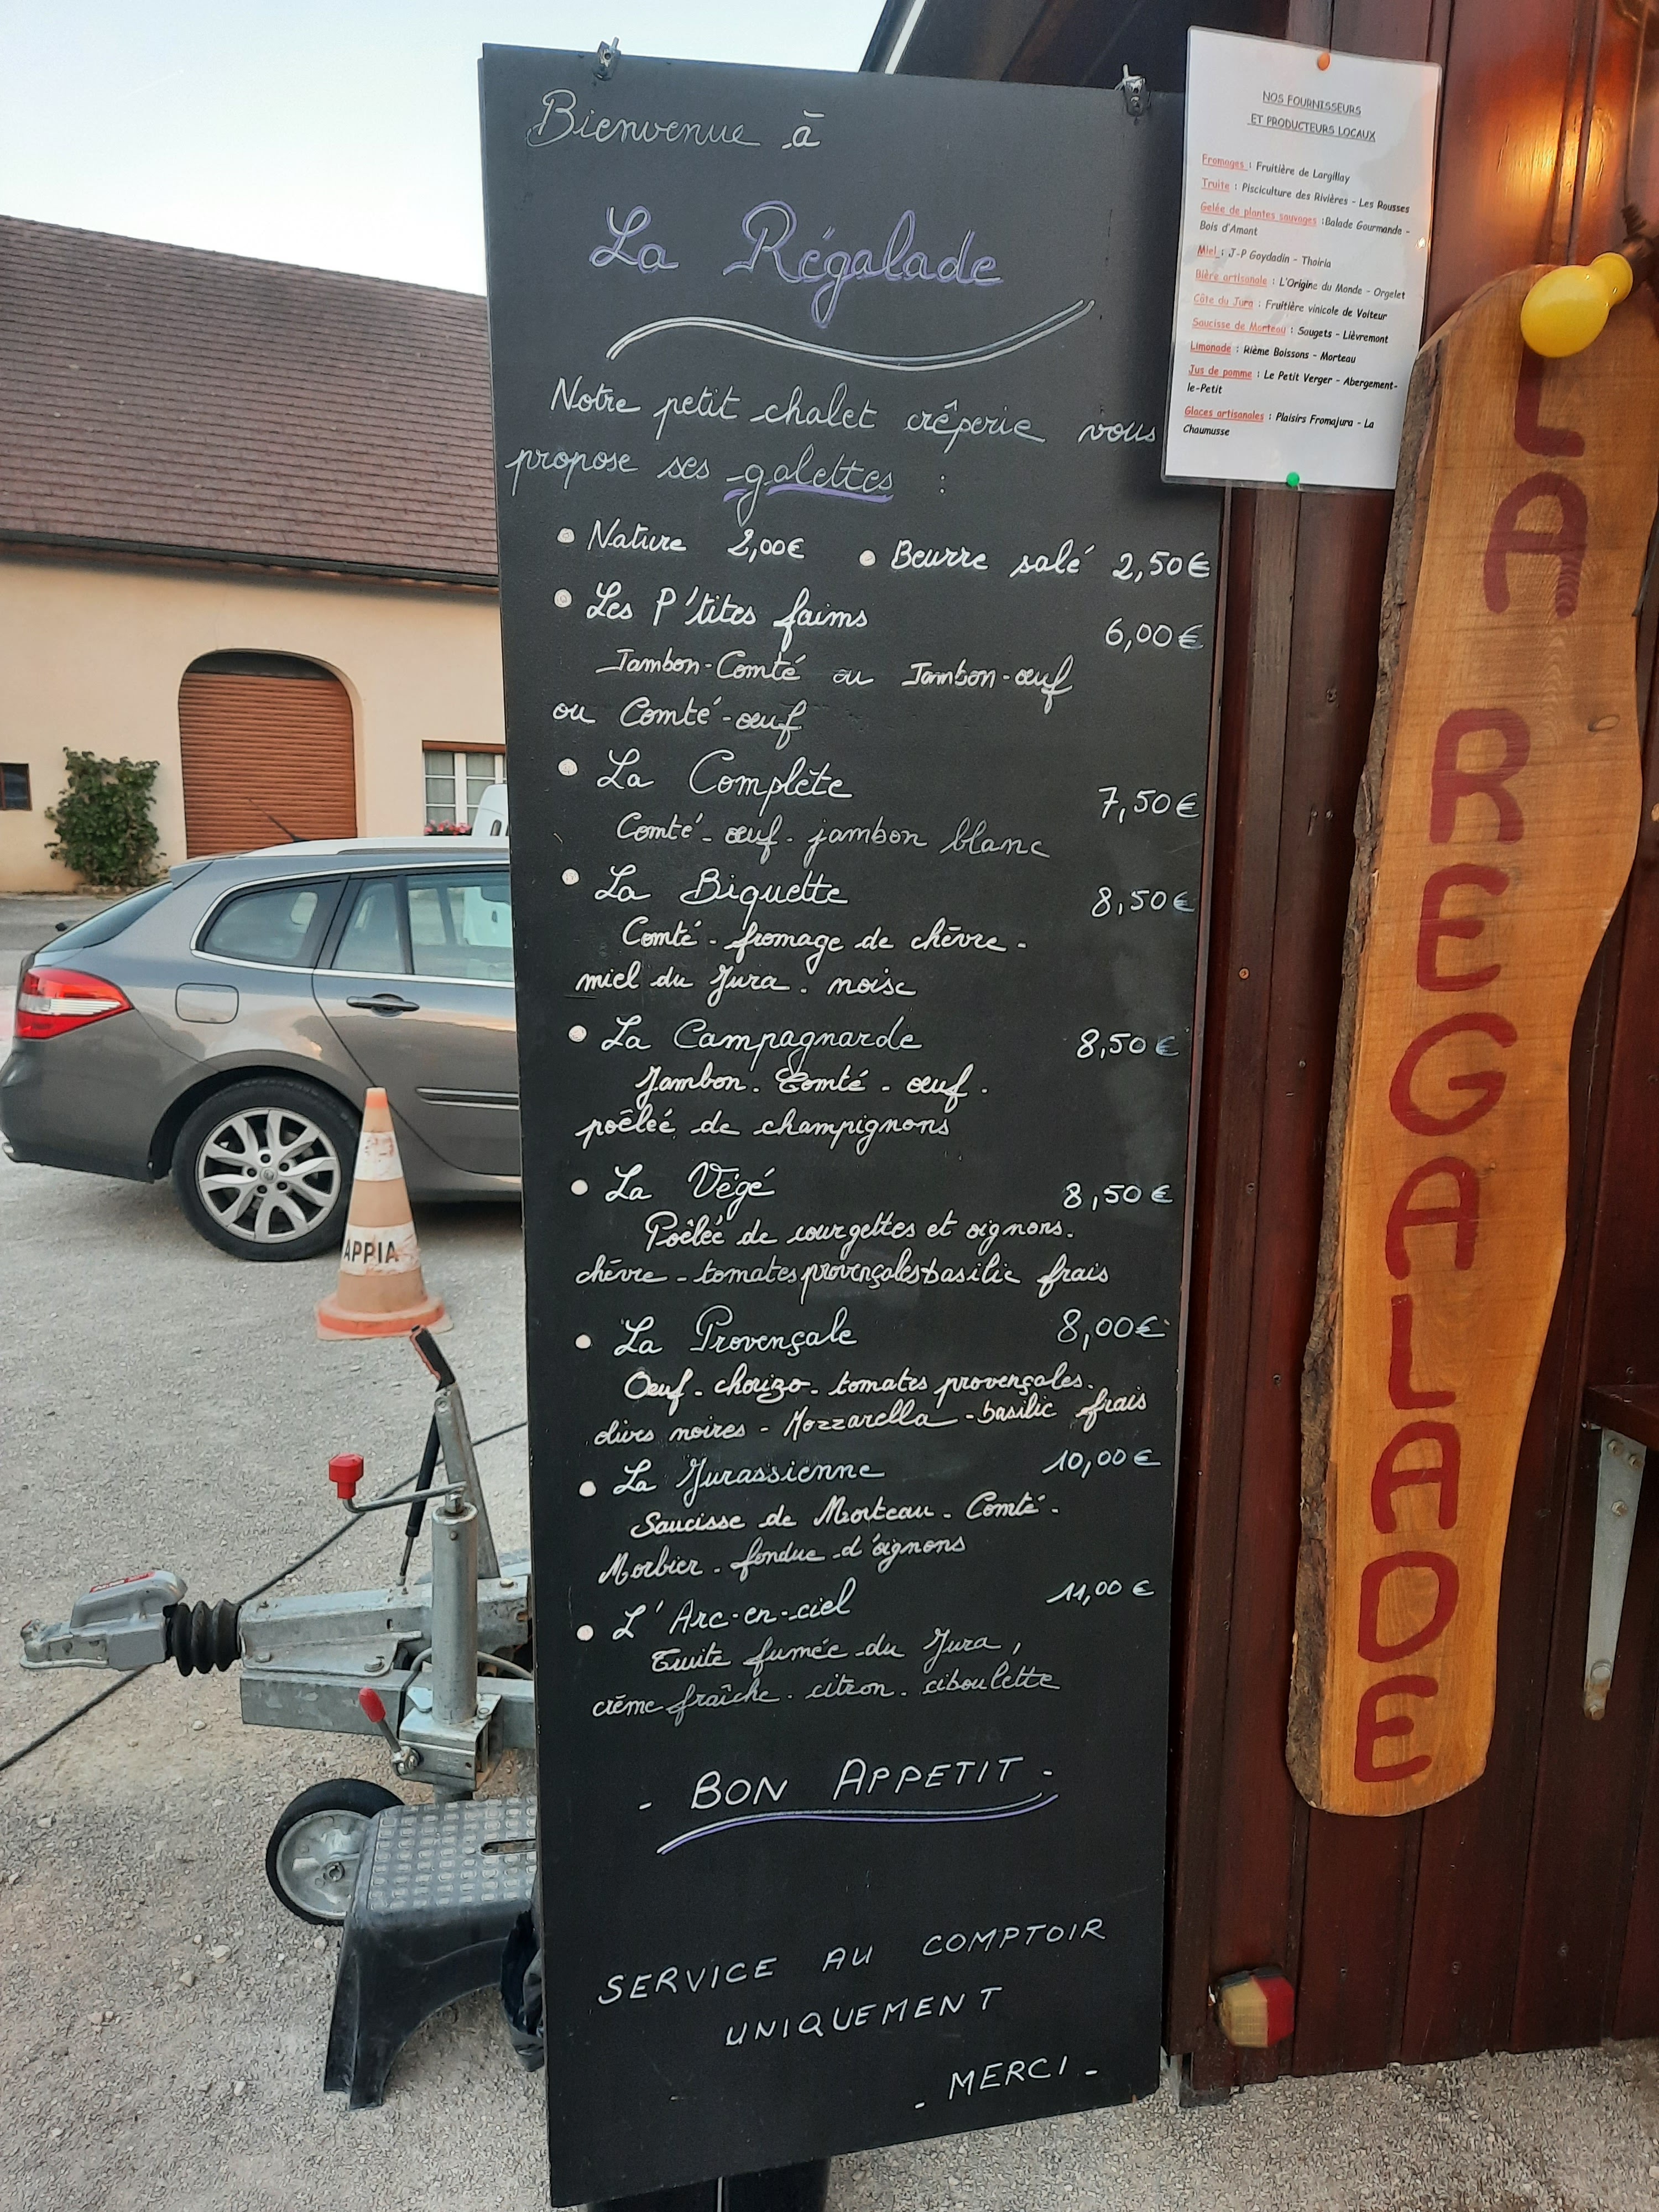 Bienvenue à
La Régalade
Notre petit chalet crêperie vous
propose ses galettes :
• Nature 2,00€ • Beurre salé 2,50€
• Les P'tites faims 6,00€
Jambon-Comté ou Jambon-œuf
ou Comté-œuf
• La Complète 7,50€
Comté - œuf - jambon blanc
• La Biquette 8,50€
Comté - fromage de chèvre -
miel du Jura - noise
• La Campagnarde 8,50€
Jambon - Comté - œuf -
poêleé de champignons
• La Végé 8,50€
Poêleé de courgettes et oignons -
chèvre - tomates provençales basilic frais
• La Provençale 8,00€
Oeuf - chorizo - tomates provençales -
olives noires - Mozzarella - basilic frais
• La Jurassienne 10,00€
Saucisse de Morteau - Comté -
Morbier - fondue d'oignons
• L'Arc-en-ciel 11,00€
Truite fumée du Jura,
crème fraîche - citron - ciboulette
- BON APPETIT -
SERVICE AU COMPTOIR
UNIQUEMENT
- MERCI -
NOS FOURNISSEURS
ET PRODUCTEURS LOCAUX
Fromages : Fruitière de Largillay
Truite : Pisciculture des Rivières - Les Rousses
Gelée de plantes sauvages : Balade Gourmande -
Bois d'Amont
Miel : J-P Goydadin - Thoiria
Bière artisanale : L'Origine du Monde - Orgelet
Côte du Jura : Fruitière vinicole de Voiteur
Saucisse de Morteau : Sougets - Lièvremont
Limonade : Rième Boissons - Morteau
Jus de pomme : Le Petit Verger - Abergement-
le-Petit
Glaces artisanales : Plaisirs Fromajura - La
Chaumusse
LA REGALADE
APPIA